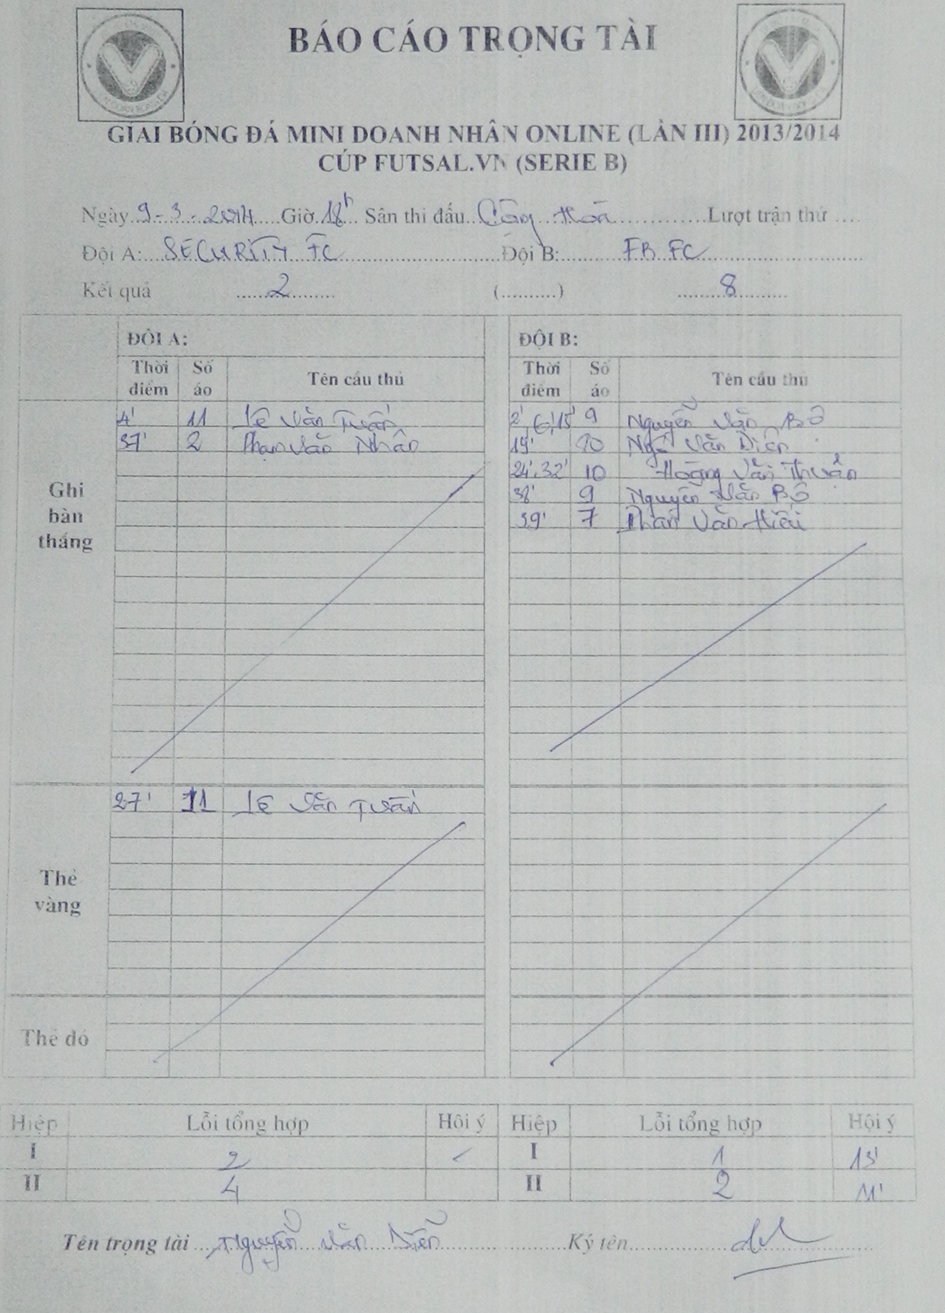 BÁO CÁO TRỌNG TÀI
GIẢI BÓNG ĐÁ MINI DOANH NHÂN ONLINE (LẦN III) 2013/2014
CÚP FUTSAL.VN (SERIE B)
Ngày 9-3-2014 Giờ 18h Sân thi đấu Cộng Hòa Lượt trận thứ
Đội A: SECURITY FC Đội B: FB FC
Kết quả 2 (..........) 8
ĐỘI A: ĐỘI B:
Thời điểm Số áo Tên cầu thủ Thời điểm Số áo Tên cầu thủ
Ghi bàn thắng
4' 11 Lê Văn Tuấn 2', 6', 15' 9 Nguyễn Văn Bô
37' 2 Phạm Văn Nhân 19' Ngô Văn Diện
24', 32' 10 Hoàng Văn Thuấn
38' 9 Nguyễn Văn Bô
39' 7 Phan Văn Hiếu
Thẻ vàng
27' 11 Lê Văn Tuấn
Thẻ đỏ
Hiệp Lỗi tổng hợp Hội ý Hiệp Lỗi tổng hợp Hội ý
I 2 I 1 15'
II 4 II 2 11'
Tên trọng tài Nguyễn Văn Diễn Ký tên